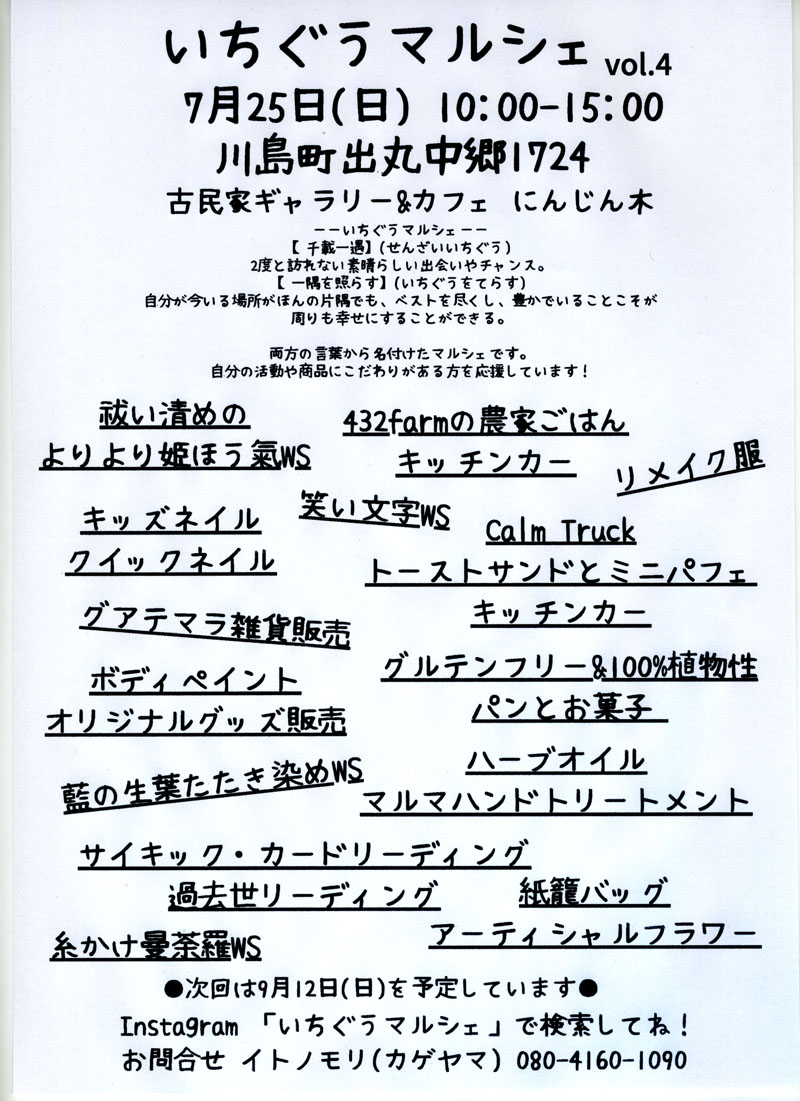 いちぐうマルシェ vol.4
7月25日(日) 10:00-15:00
川島町出丸中郷1724
古民家ギャラリー&カフェ にんじん木
--いちぐうマルシェ--
【千載一遇】(せんざいいちぐう)
2度と訪れない素晴らしい出会いやチャンス。
【一隅を照らす】(いちぐうをてらす)
自分が今いる場所がほんの片隅でも、ベストを尽くし、豊かでいることこそが
周りも幸せにすることができる。
両方の言葉から名付けたマルシェです。
自分の活動や商品にこだわりがある方を応援しています!
祓い清めの
よりより姫ほう氣WS
432farmの農家ごはん
キッチンカー
リメイク服
キッズネイル
クイックネイル
笑い文字WS
Calm Truck
トーストサンドとミニパフェ
キッチンカー
グアテマラ雑貨販売
ボディペイント
オリジナルグッズ販売
グルテンフリー&100%植物性
パンとお菓子
藍の生葉たたき染めWS
ハーブオイル
マルマハンドトリートメント
サイキック・カードリーディング
過去世リーディング
紙籠バッグ
アーティシャルフラワー
糸かけ曼荼羅WS
●次回は9月12日(日)を予定しています●
Instagram 「いちぐうマルシェ」で検索してね!
お問合せ イトノモリ(カゲヤマ) 080-4160-1090